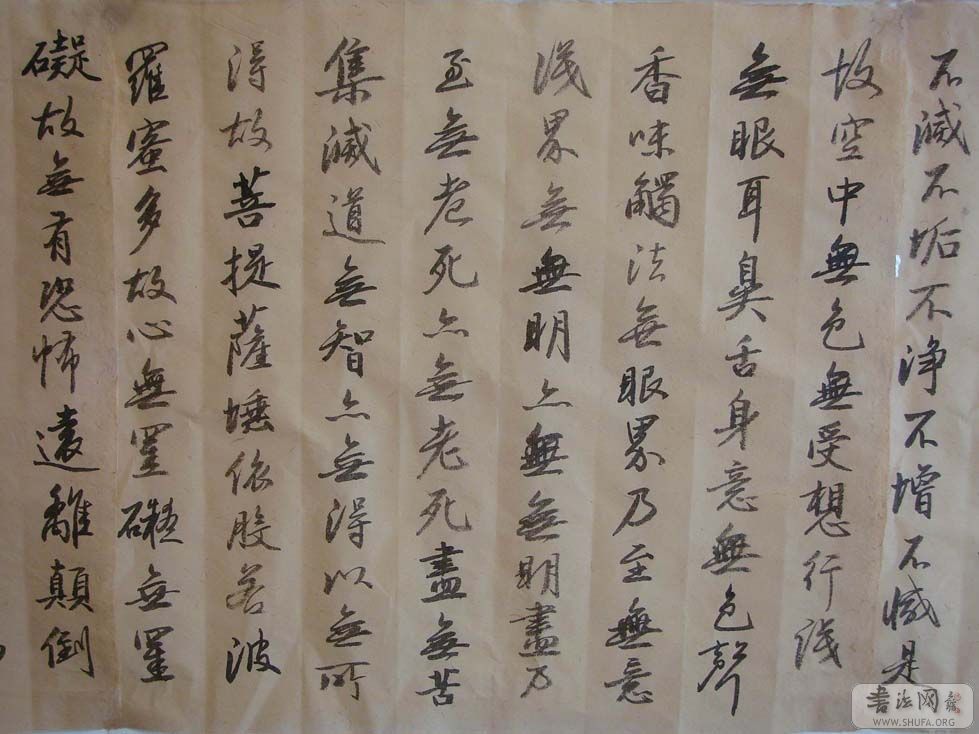 不滅不垢不淨不增不減是
故空中無色無受想行識
無眼耳鼻舌身意無色聲
香味觸法無眼界乃至無意
識界無無明亦無無明盡乃
至無老死亦無老死盡無苦
集滅道無智亦無得以無所
得故菩提薩埵依般若波
羅蜜多故心無罣礙無罣
礙故無有恐怖遠離顛倒
書法网
WWW.SHUFA.ORG